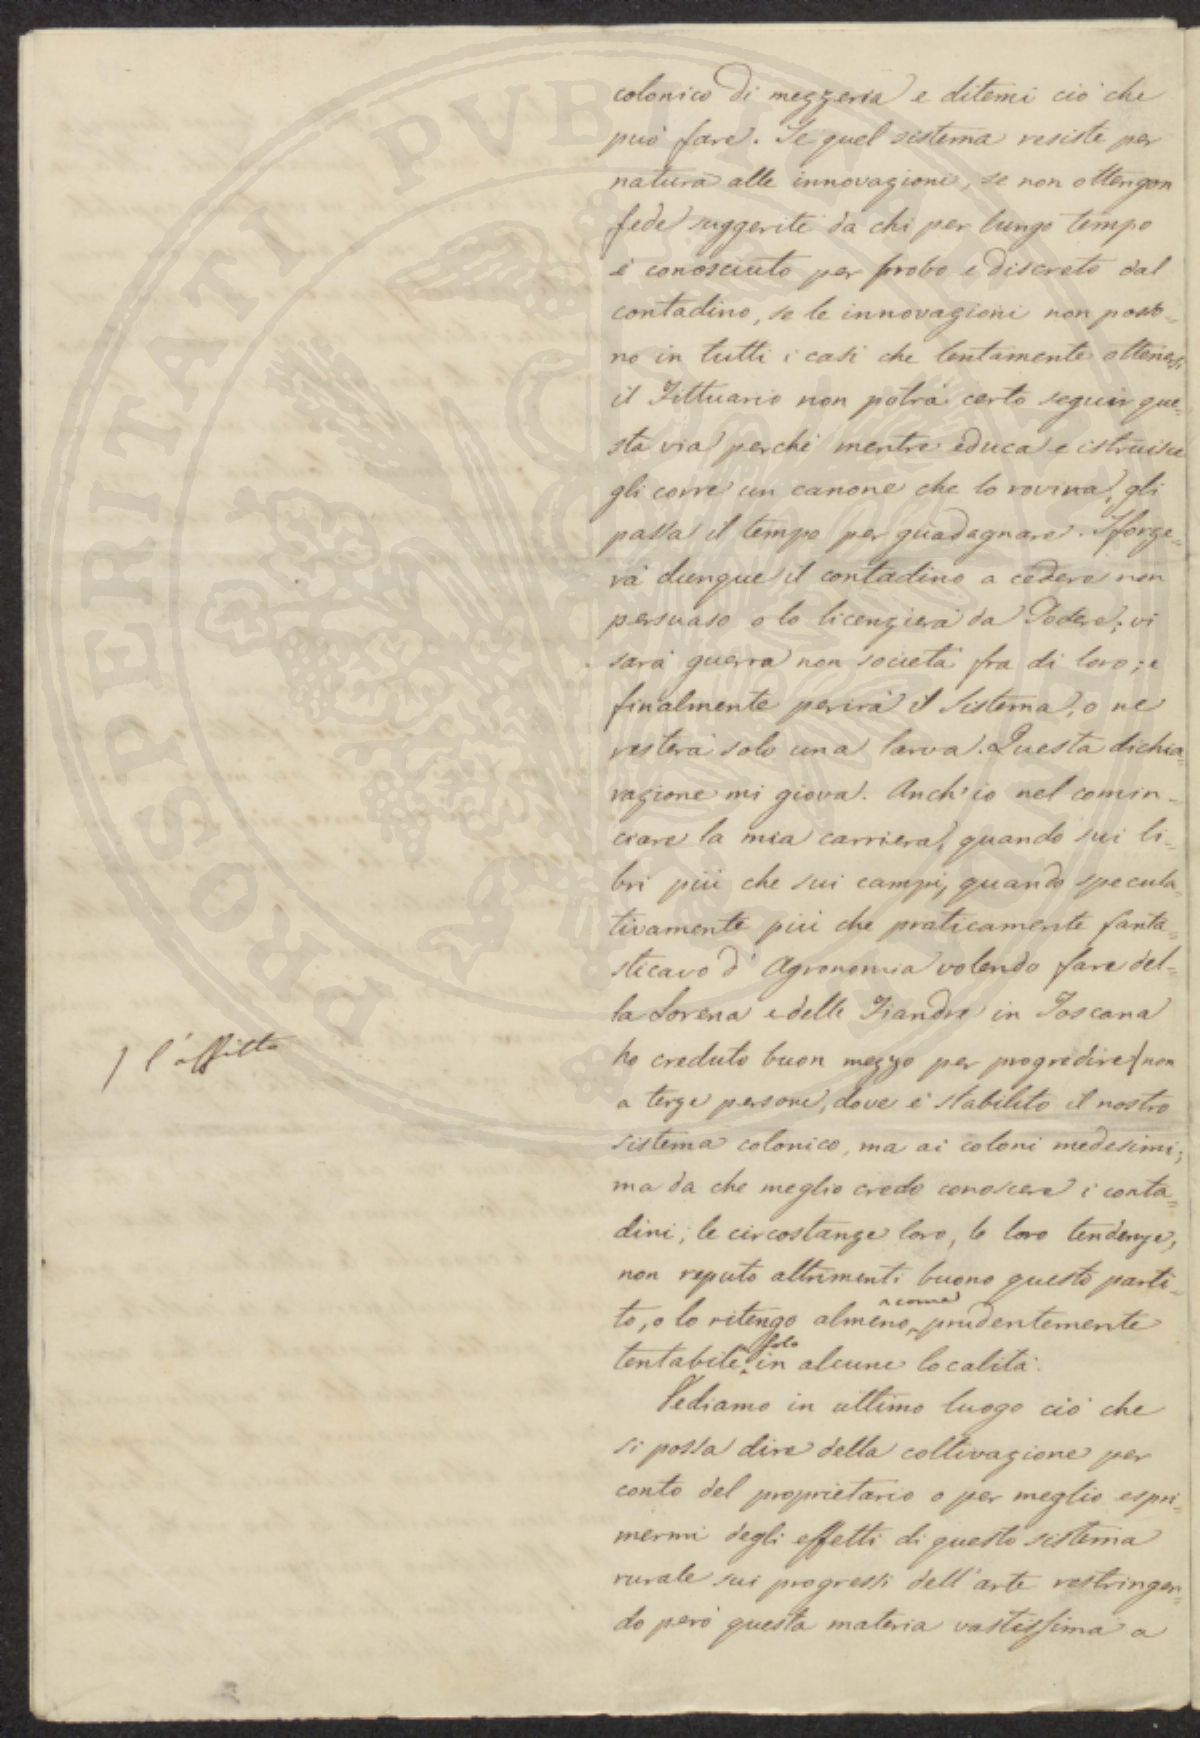 colonico di mezzeria e ditemi ciò che
può fare. Se quel sistema resiste per
natura alle innovazioni, se non ottengon
fede suggerite da chi per lungo tempo
è conosciuto per probo e discreto dal
contadino, se le innovazioni non posso=
no in tutti i casi che lentamente ottenersi
il Fittuario non potrà certo seguir que=
sta via perché mentre educa e istruisce
gli corre un canone che lo rovina, gli
passa il tempo per guadagnare. Sforze=
rà dunque il contadino a cedere non
persuaso o lo licenzierà da Podere; vi
sarà guerra non società fra di loro; e
finalmente perirà il Sistema, o ne
resterà solo una larva. Questa dichia=
razione mi giova. Anch'io nel comin=
ciare la mia carriera, quando sui li=
bri più che sui campi, quando specula=
tivamente più che praticamente fanta=
sticavo d'Agronomia volendo fare del=
la Lorena e delle Fiandre in Toscana
/ l'affitto
ho creduto buon mezzo per progredire / non
a terze persone, dove è stabilito il nostro
sistema colonico, ma ai coloni medesimi;
ma da che meglio credo conoscere i conta=
dini, le circostanze loro, le loro tendenze,
non reputo altrimenti buono questo parti=
to, o lo ritengo almeno come prudentemente
tentabile solo in alcune località.
Vediamo in ultimo luogo ciò che
si possa dire della coltivazione per
conto del proprietario o per meglio espri=
mermi degli effetti di questo sistema
rurale sui progressi dell'arte restringen=
do però questa materia vastissima a
PROSPERITATI PVBLICAE